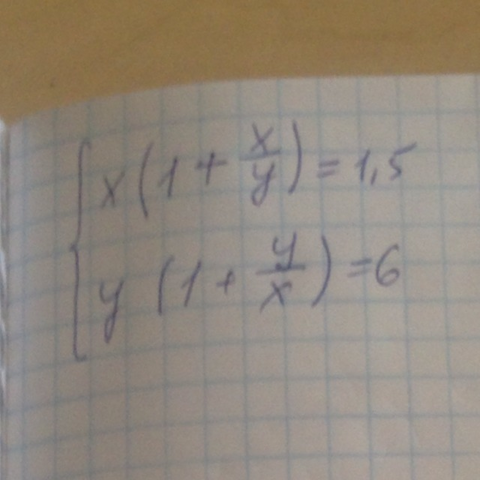 x(1 + x/y) = 1,5
y(1 + y/x) = 6